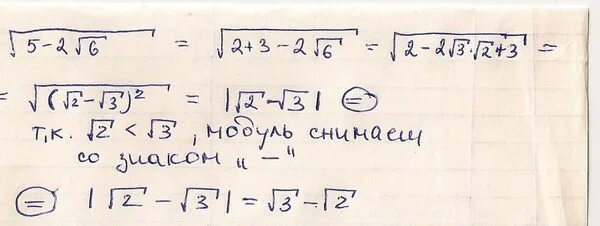 √(5-2√6) = √(2+3-2√6) = √(2-2√3·√2+3) =
= √((√2-√3)²) = |√2-√3| ⊜
т.к. √2 < √3, модуль снимаем
со знаком „ – “
⊜ |√2 - √3| = √3 - √2